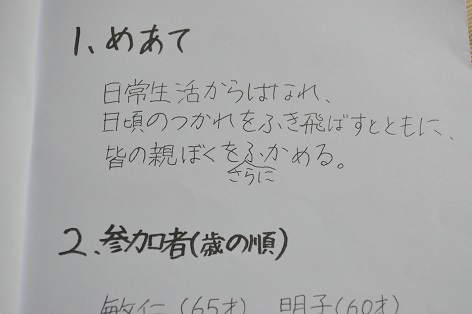 1、めあて
日常生活からはなれ、
日頃のつかれをふき飛ばすとともに、
皆の親ぼくをふかめる。
さらに
2、参加者(歳の順)
敏仁(65才) 明子(60才)